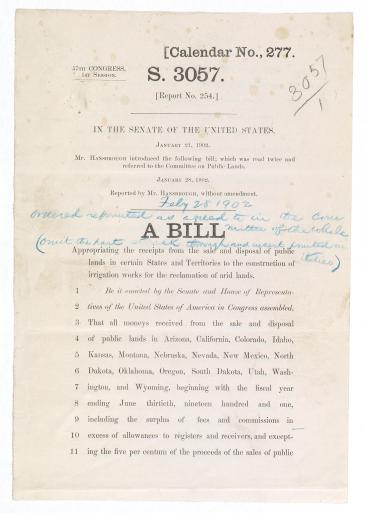 [Calendar No., 277.
57TH CONGRESS,
1ST SESSION.
S. 3057.
3057
1
[Report No. 254.]
IN THE SENATE OF THE UNITED STATES.
JANUARY 21, 1902.
Mr. HANSBROUGH introduced the following bill; which was read twice and
referred to the Committee on Public Lands.
JANUARY 28, 1902.
Reported by Mr. HANSBROUGH, without amendment.
Feby 28 1902
ordered reprinted as agreed to in the Com
mittee of the whole
A BILL
(omit the parts through and insert printed in
italics)
Appropriating the receipts from the sale and disposal of public
lands in certain States and Territories to the construction of
irrigation works for the reclamation of arid lands.
1 Be it enacted by the Senate and House of Representa-
2 tives of the United States of America in Congress assembled,
3 That all moneys received from the sale and disposal
4 of public lands in Arizona, California, Colorado, Idaho,
5 Kansas, Montana, Nebraska, Nevada, New Mexico, North
6 Dakota, Oklahoma, Oregon, South Dakota, Utah, Wash-
7 ington, and Wyoming, beginning with the fiscal year
8 ending June thirtieth, nineteen hundred and one,
9 including the surplus of fees and commissions in
10 excess of allowances to registers and receivers, and except-
11 ing the five per centum of the proceeds of the sales of public